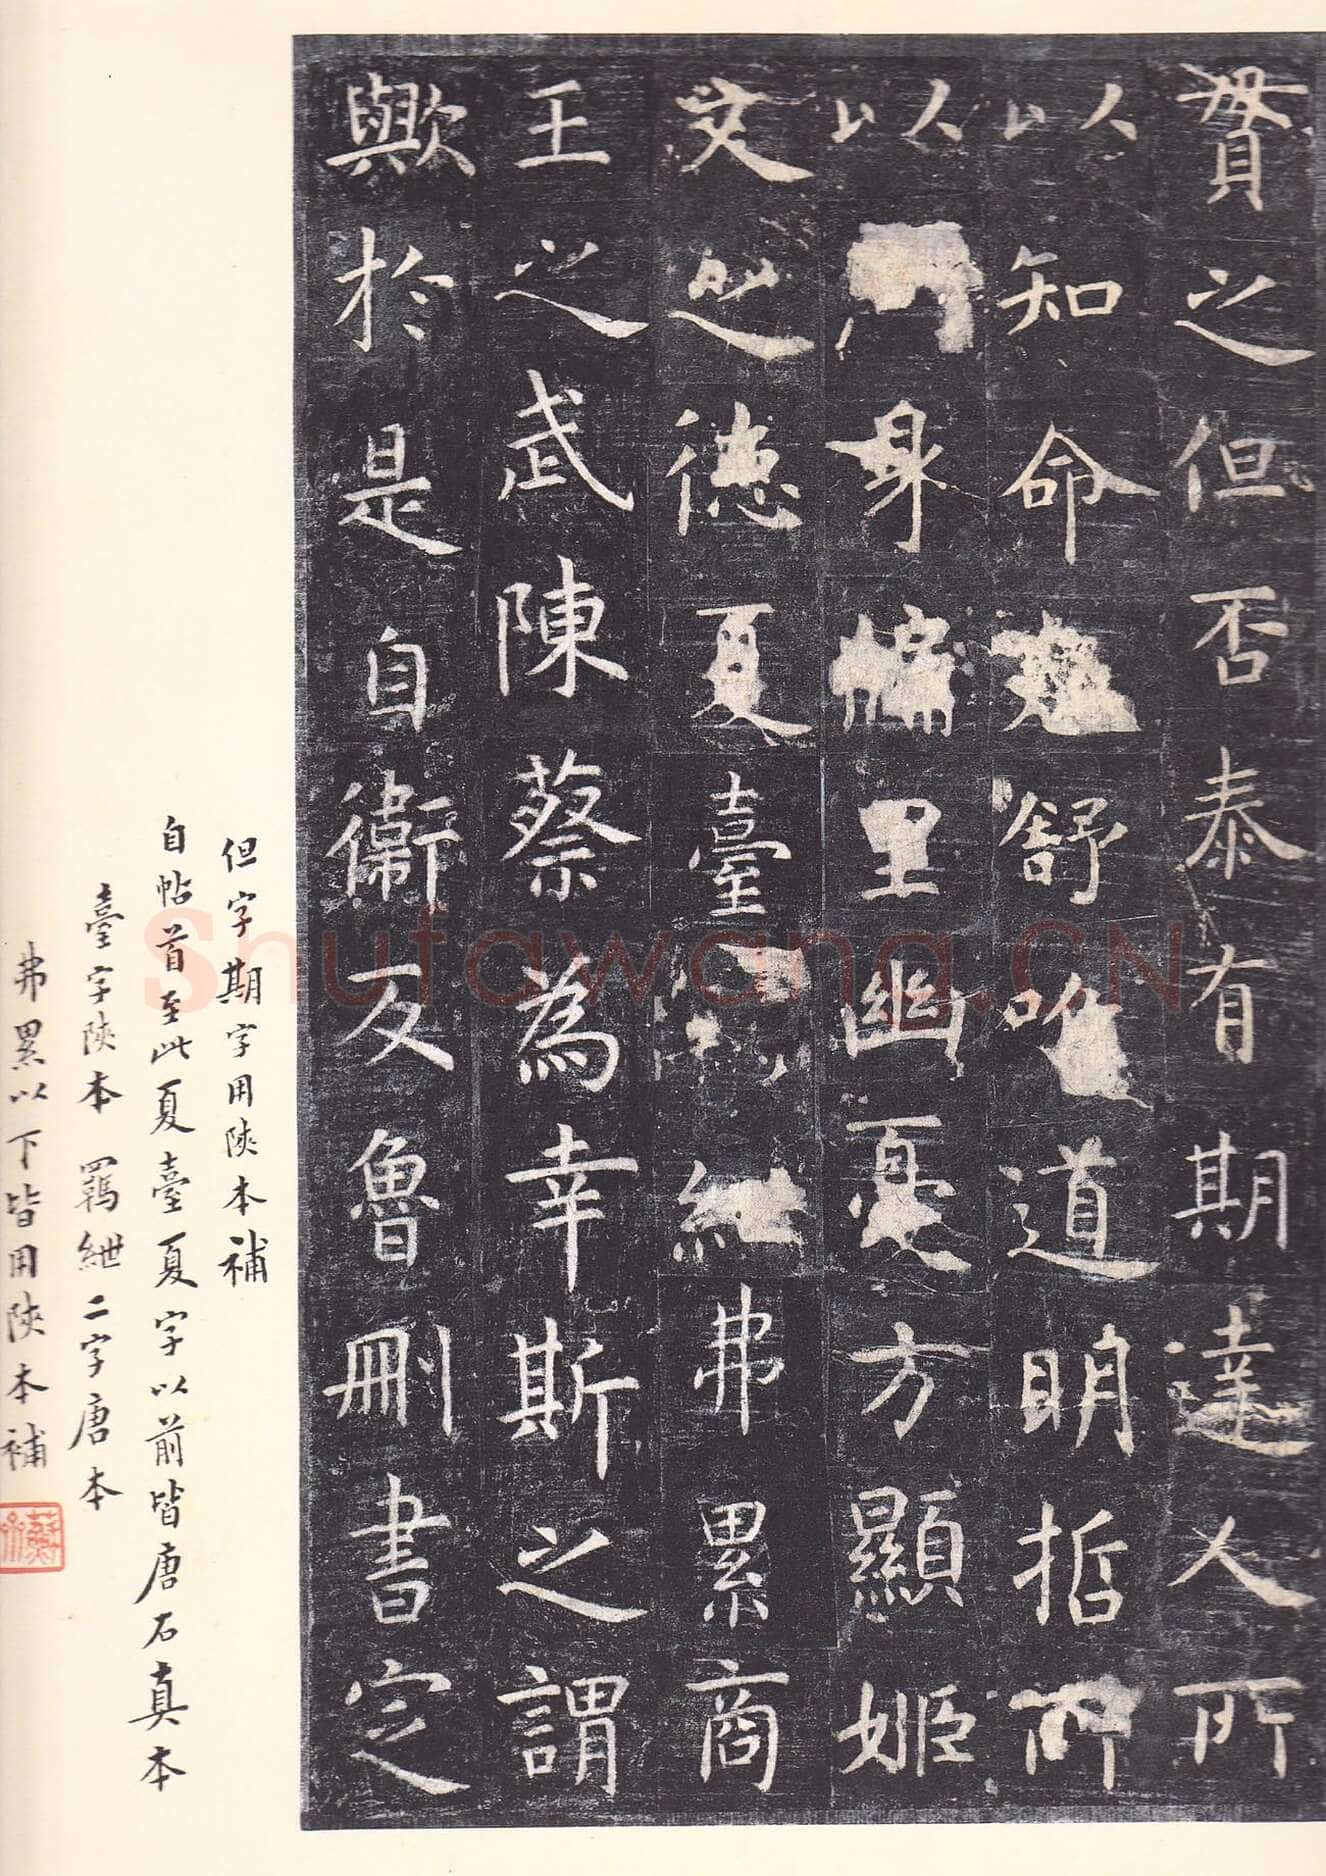 貫之但否泰有期達人所
以知命卷舒唯道明哲所
以身牖里幽憂方顯姬
文之德夏臺紲弗累商
王之武陳蔡為幸斯之謂
歟於是自衛反魯刪書定
但字期字用陝本補
自帖首至此夏臺夏字以前皆唐石真本
臺字陝本 羈紲二字唐本
弗累以下皆用陝本補
Shufawang.CN